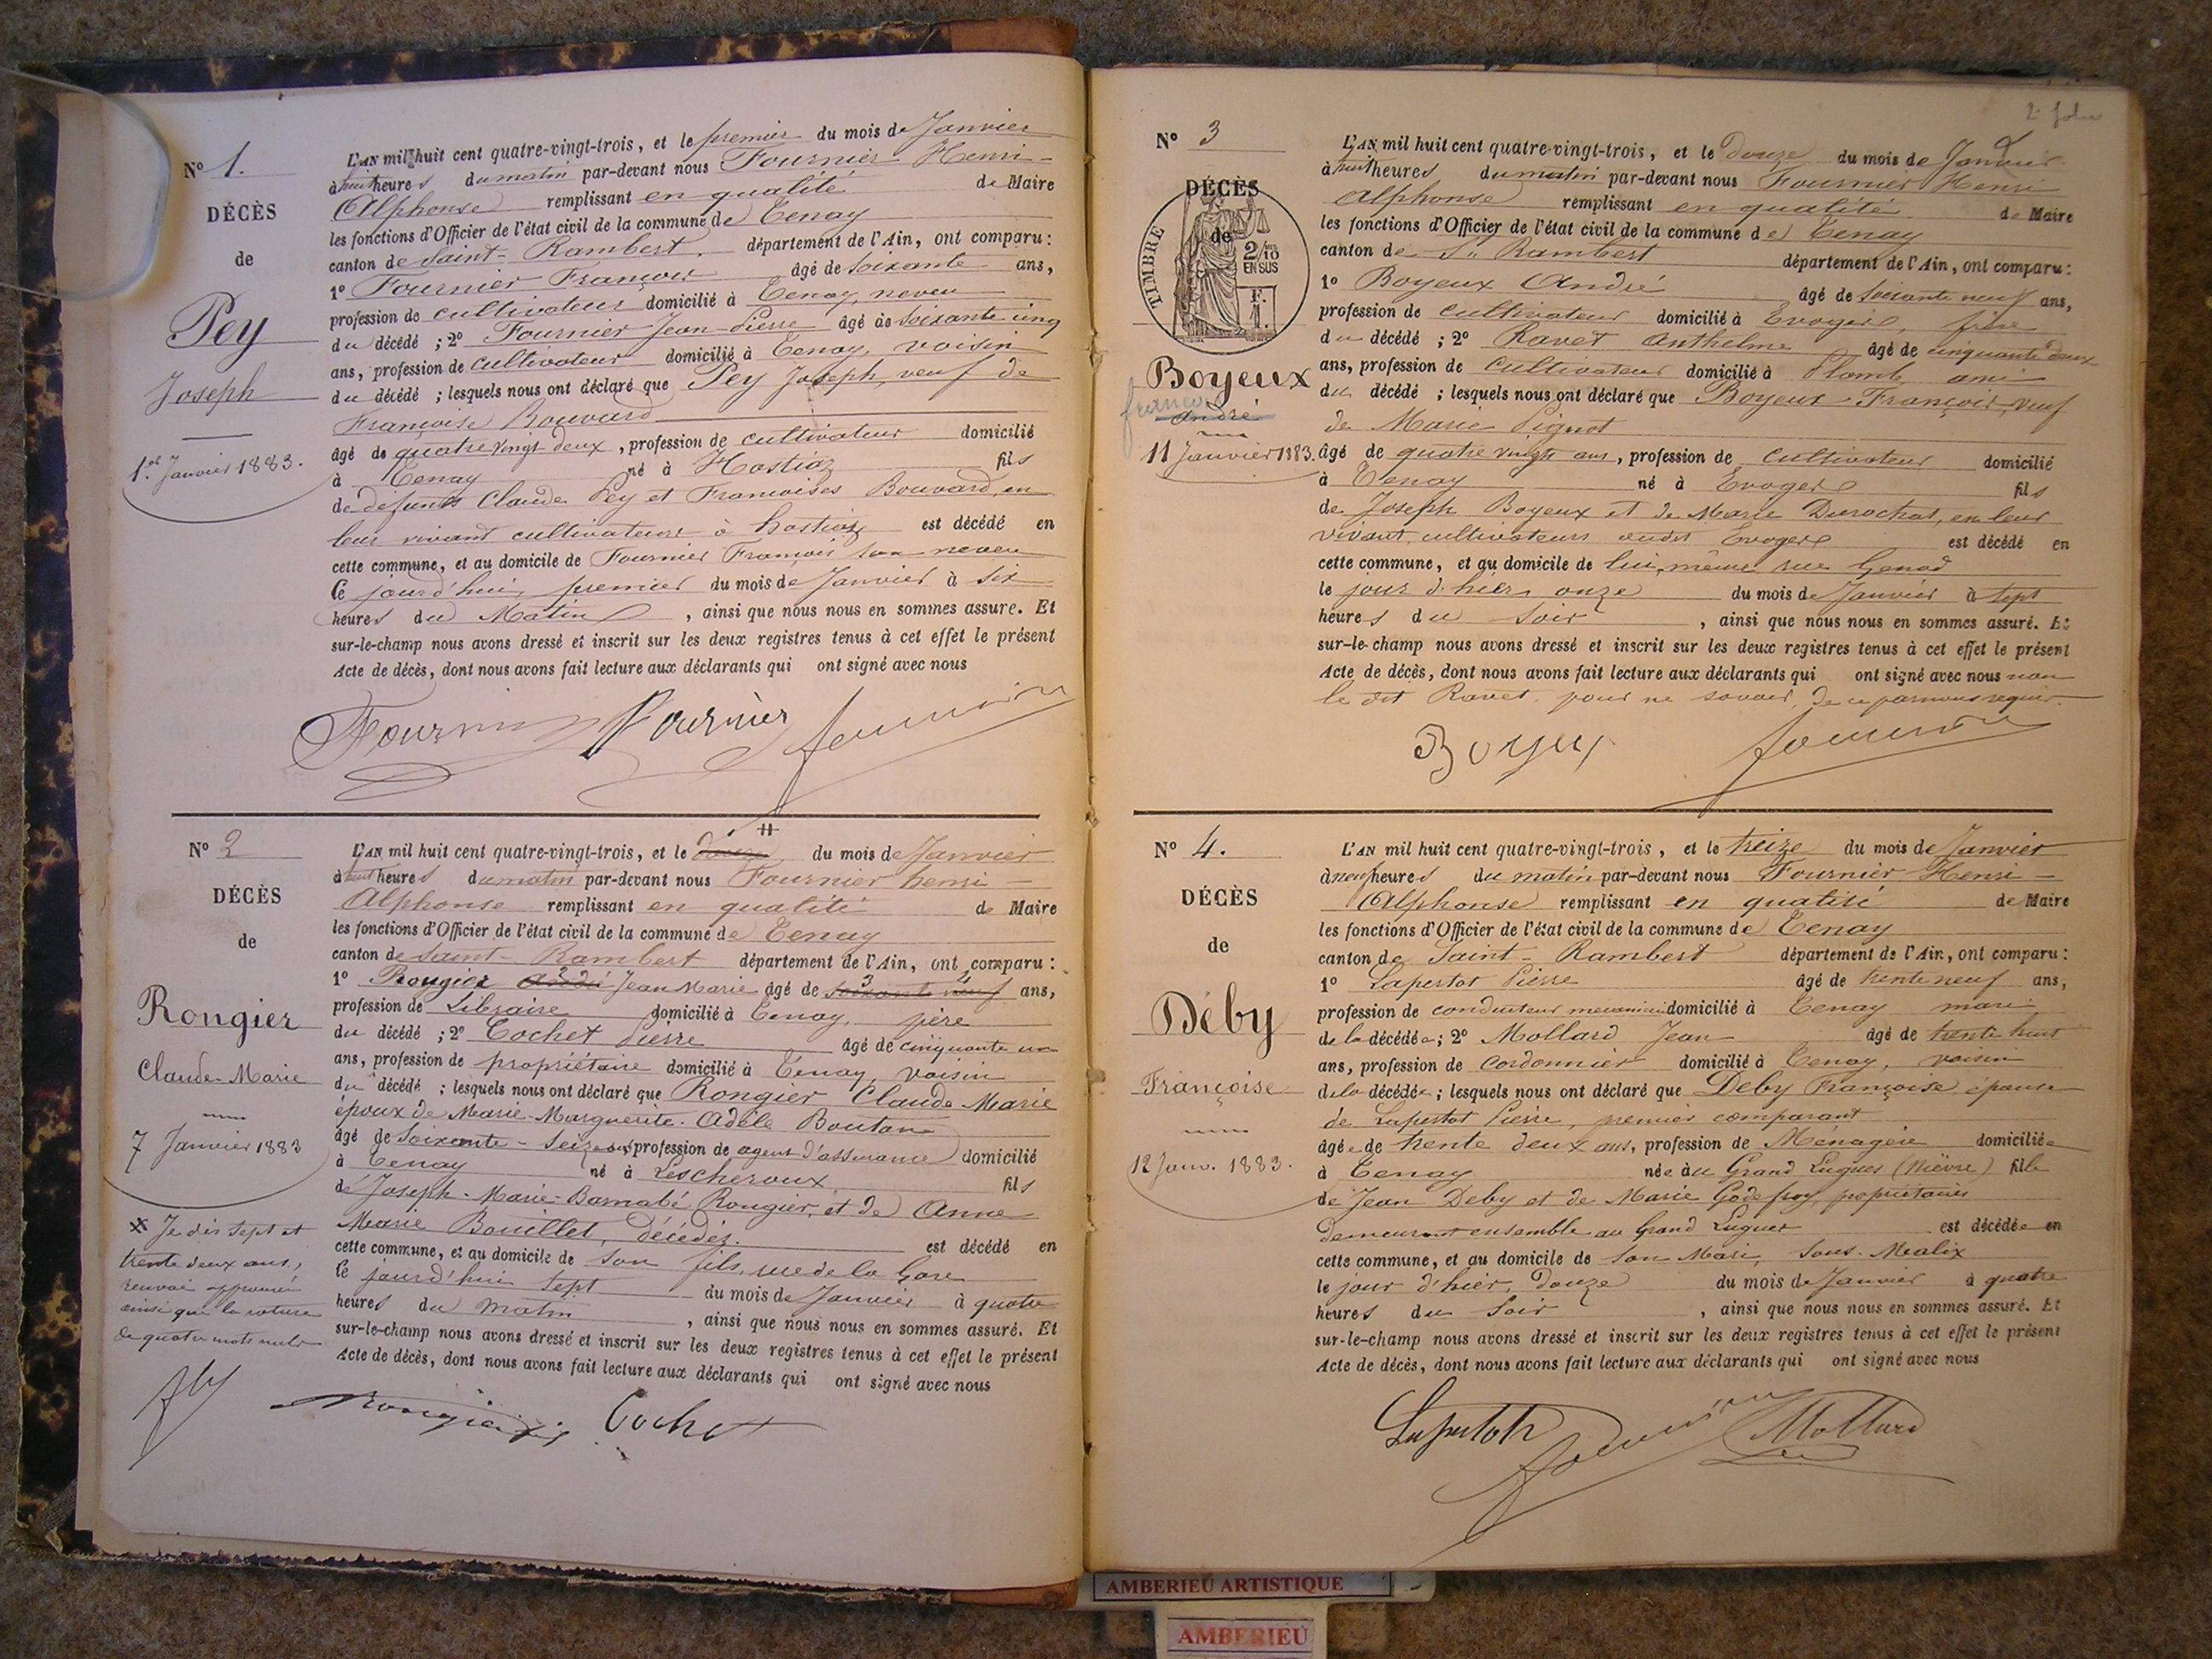 Nº 1.
DÉCÈS
de
Pey
Joseph
1er Janvier 1883.
L'AN mil huit cent quatre-vingt-trois, et le premier du mois de Janvier
à huit heures du matin par-devant nous Fournier Henri-
Alphonse remplissant en qualité de Maire
les fonctions d'Officier de l'état civil de la commune de Tenay
canton de Saint-Rambert. département de l'Ain, ont comparu :
1º Fournier François âgé de soixante ans,
profession de cultivateur domicilié à Tenay, neveu
du décédé ; 2º Fournier Jean-Pierre âgé de soixante cinq
ans, profession de cultivateur domicilié à Tenay, voisin
du décédé ; lesquels nous ont déclaré que Pey Joseph, veuf de
Françoise Bouvard
âgé de quatre vingt deux, profession de cultivateur domicilié
à Tenay né à Hostiaz fils
de défunts Claude Pey et Françoises Bouvard, en
leur vivant cultivateurs à hostiaz est décédé en
cette commune, et au domicile de Fournier François son neveu
Ce jourd'hui, premier du mois de Janvier à six
heures du Matin, ainsi que nous nous en sommes assuré. Et
sur-le-champ nous avons dressé et inscrit sur les deux registres tenus à cet effet le présent
Acte de décès, dont nous avons fait lecture aux déclarants qui ont signé avec nous
Fournier Fournier Fournier
Nº 2
DÉCÈS
de
Rongier
Claude-Marie
7 Janvier 1883
L'AN mil huit cent quatre-vingt-trois, et le douze du mois de Janvier
à huit heures du matin par-devant nous Fournier henri-
Alphonse remplissant en qualité de Maire
les fonctions d'Officier de l'état civil de la commune de Tenay
canton de Saint-Rambert département de l'Ain, ont comparu :
1º Rongier André Jean Marie âgé de soixante neuf ans,
profession de Libraire domicilié à Tenay, père
du décédé ; 2º Cochet Pierre âgé de cinquante un
ans, profession de propriétaire domicilié à Tenay, voisin
du décédé ; lesquels nous ont déclaré que Rongier Claude Marie
époux de Marie-Marguerite-Adèle Boutan
âgé de soixante-seize ans, profession de agent d'assurance domicilié
à Tenay né à Lescheroux fils
de Joseph-Marie-Barnabé Rongier, et de Anne
Marie Bouillet, décédés. est décédé en
cette commune, et au domicile de son fils, rue de la Gare
Ce jourd'hui sept du mois de Janvier à quatre
heures du matin, ainsi que nous nous en sommes assuré. Et
sur-le-champ nous avons dressé et inscrit sur les deux registres tenus à cet effet le présent
Acte de décès, dont nous avons fait lecture aux déclarants qui ont signé avec nous
Je dis sept et
trente deux ans,
renvoi approuvé
ainsi que la rature
de quatre mots nuls
Rongier Cochet
2e folio
Nº 3
DÉCÈS
de
TIMBRE
2/10
EN SUS
F.
1.
Boyeux
françois
André
11 Janvier 1883.
L'AN mil huit cent quatre-vingt-trois, et le douze du mois de Janvier
à huit heures du matin par-devant nous Fournier Henri
Alphonse remplissant en qualité de Maire
les fonctions d'Officier de l'état civil de la commune de Tenay
canton de St Rambert département de l'Ain, ont comparu :
1º Boyeux André âgé de soixante neuf ans,
profession de cultivateur domicilié à Evoges, frère
du décédé ; 2º Ravet Anthelme âgé de cinquante deux
ans, profession de cultivateur domicilié à Plomb ami
du décédé ; lesquels nous ont déclaré que Boyeux François, veuf
de Marie
âgé de quatre vingts ans, profession de cultivateur domicilié
à Tenay né à Evoges fils
de Joseph Boyeux et de Marie Durochat, en leur
vivant, cultivateurs audit Evoges est décédé en
cette commune, et au domicile de lui même rue Genod
le jour d'hier, onze du mois de Janvier à sept
heures du soir, ainsi que nous nous en sommes assuré. Et
sur-le-champ nous avons dressé et inscrit sur les deux registres tenus à cet effet le présent
Acte de décès, dont nous avons fait lecture aux déclarants qui ont signé avec nous non
le dit Ravet, pour ne savoir, de ce par nous requis.
Boyeux Fournier
Nº 4.
DÉCÈS
de
Déby
Françoise
12 Janv. 1883.
L'AN mil huit cent quatre-vingt-trois, et le treize du mois de Janvier
à neuf heures du matin par-devant nous Fournier Henri-
Alphonse remplissant en qualité de Maire
les fonctions d'Officier de l'état civil de la commune de Tenay
canton de Saint-Rambert département de l'Ain, ont comparu :
1º Lapertot Pierre âgé de trente neuf ans,
profession de conducteur mécanicien domicilié à Tenay mari
de la décédée ; 2º Mollard Jean âgé de trente huit
ans, profession de Cordonnier domicilié à Tenay, voisin
de la décédée ; lesquels nous ont déclaré que Déby Françoise épouse
de Lapertot Pierre, premier comparant
âgée de trente deux ans, profession de Ménagère domiciliée
à Tenay née au Grand Luguet (Nièvre) fille
de Jean Deby et de Marie Godefroy, propriétaires
demeurant ensemble au Grand Luguet est décédée en
cette commune, et au domicile de son Mari, Sous-Mealix
le jour d'hier, douze du mois de Janvier à quatre
heures du soir, ainsi que nous nous en sommes assuré. Et
sur-le-champ nous avons dressé et inscrit sur les deux registres tenus à cet effet le présent
Acte de décès, dont nous avons fait lecture aux déclarants qui ont signé avec nous
Lapertot Fournier Mollard
AMBERIEU ARTISTIQUE
AMBERIEU